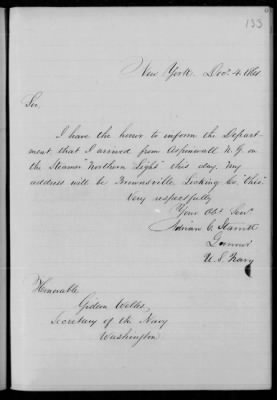 133
New York Decr. 4. 1861
Sir,
I have the honor to inform the Depart-
ment, that I arrived from Aspinwall N. G. on
the Steamer "Northern Light" this day. My
address will be Brownsville Licking Co. Ohio.
Very respectfully
Your Obt. Servt.
Adrian C. Starrett
Gunner
U. S. Navy
Honorable
Gideon Welles
Secretary of the Navy
Washington